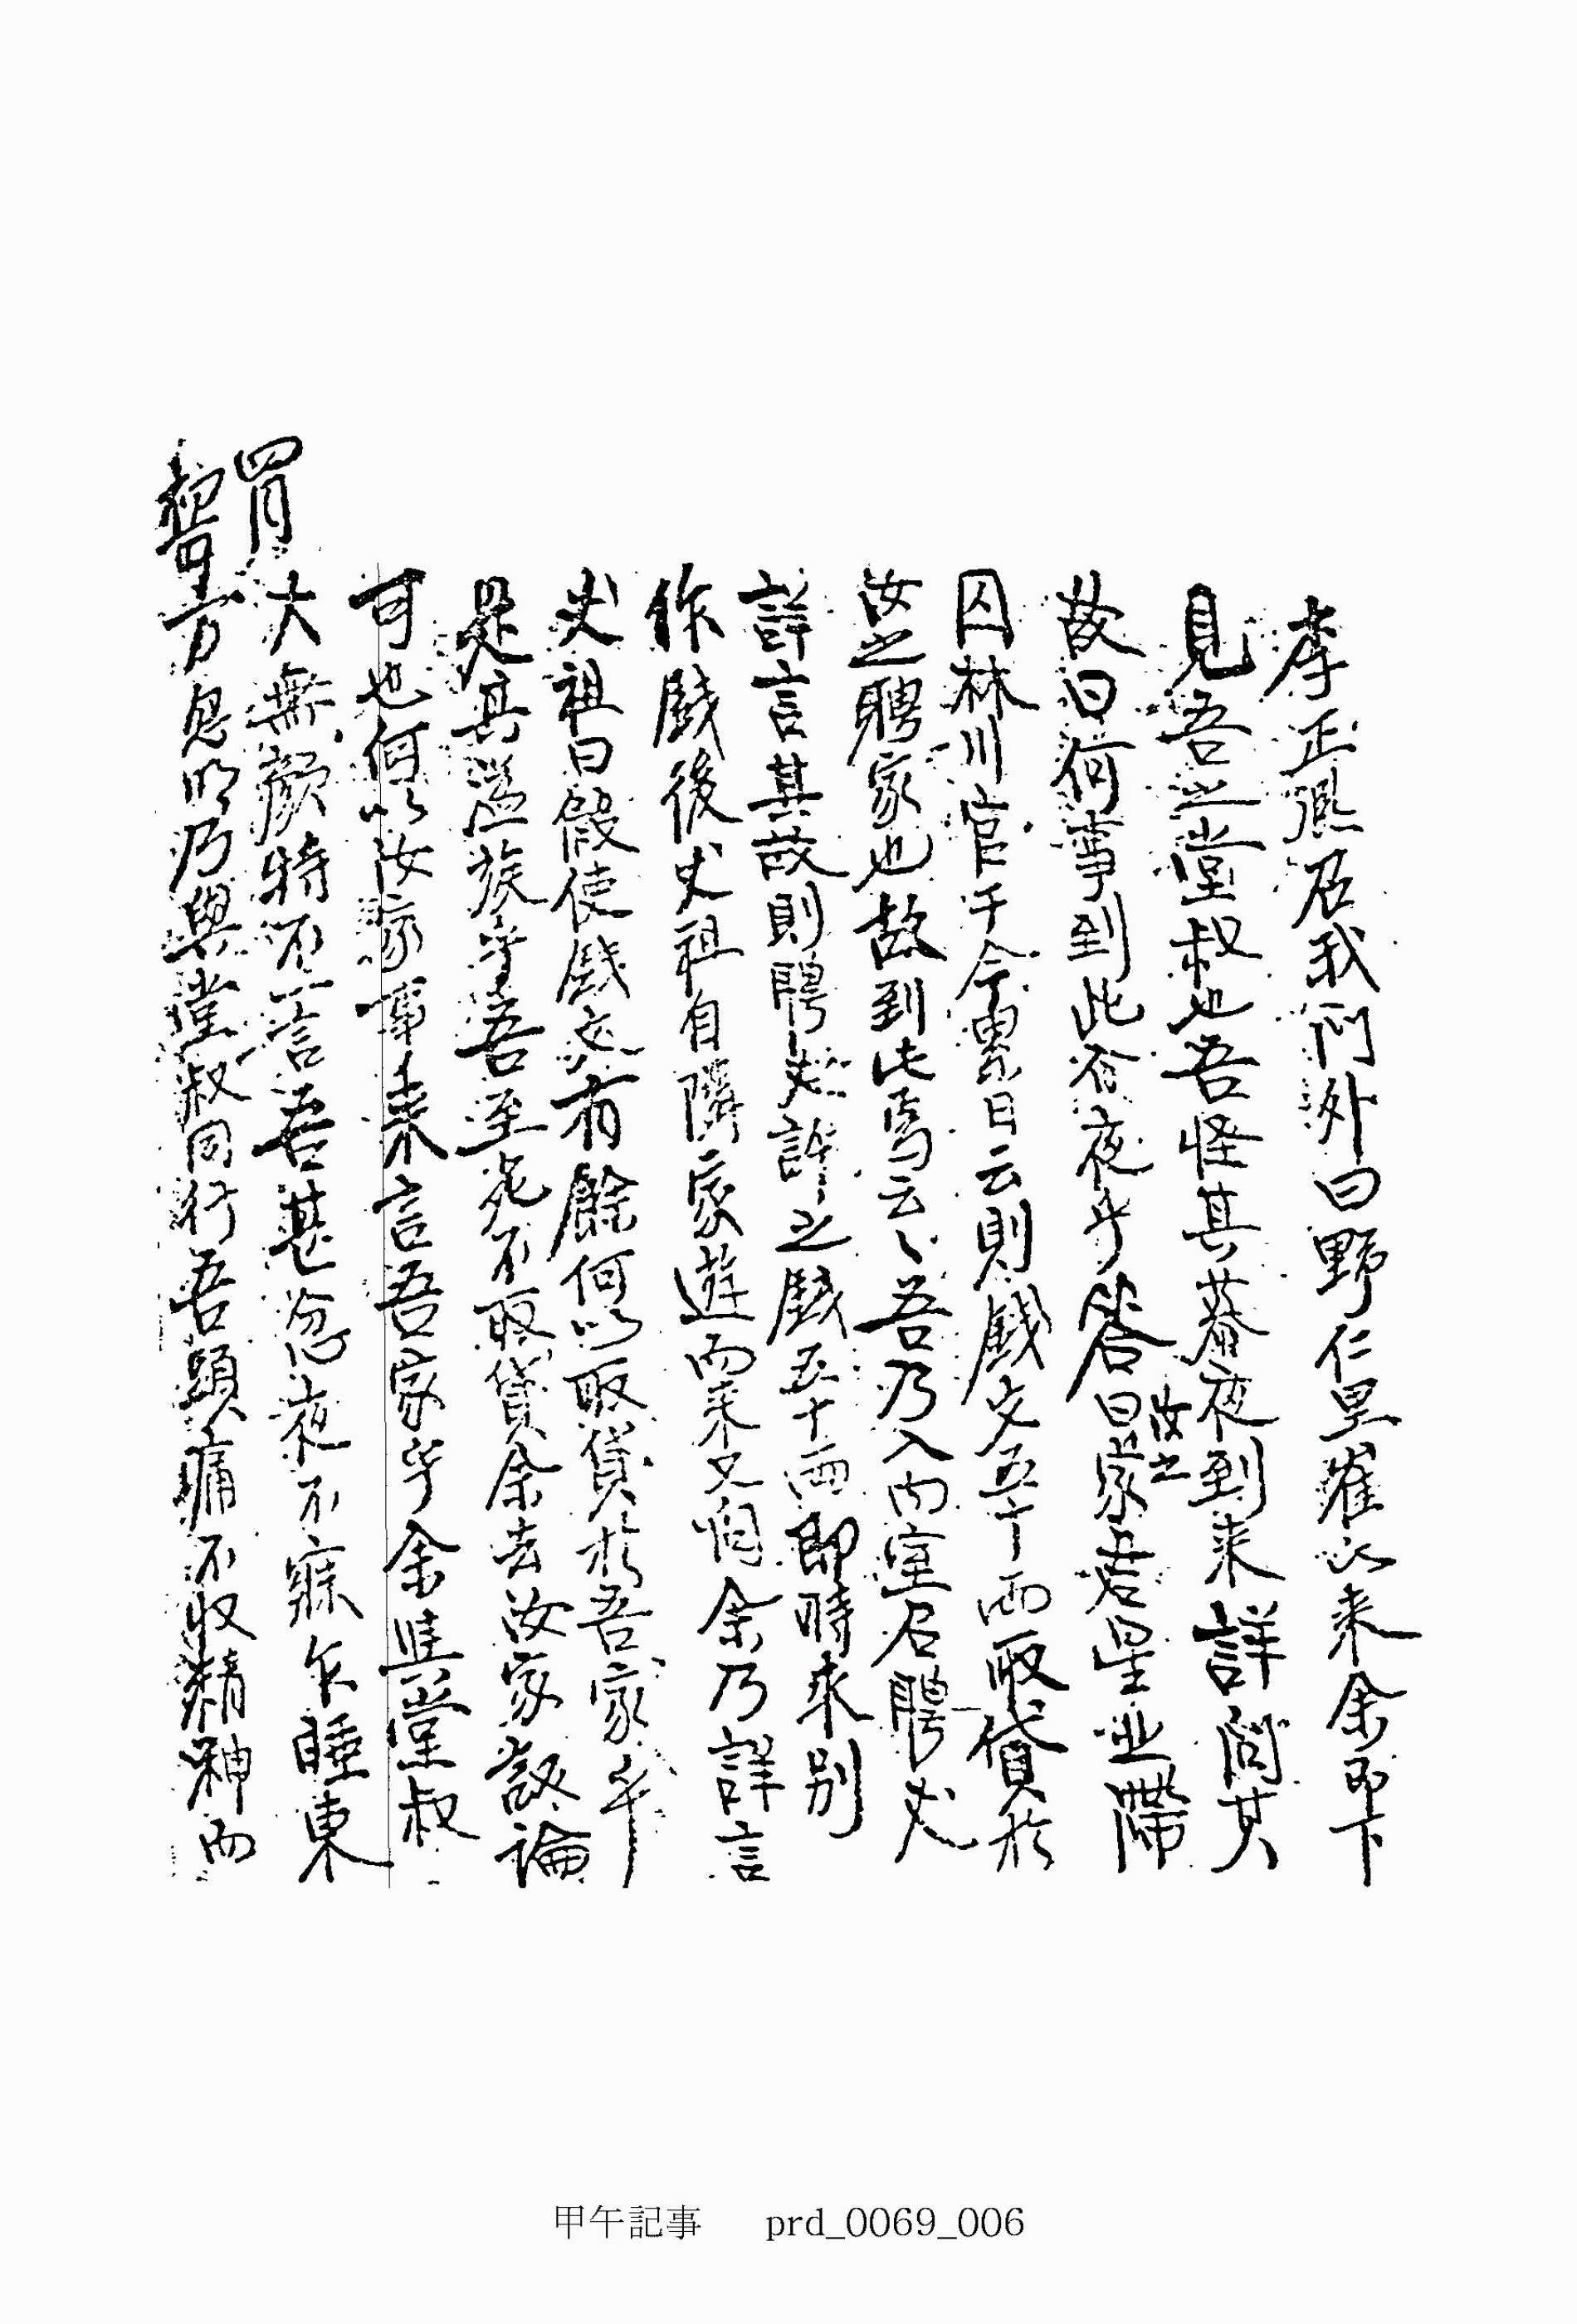 李正凞召我門外曰野仁里崔以来余即下
見吾之堂叔也吾怪其暮夜到来詳問其
故曰何事到此谷夜乎答曰汝之家君星也滯
囚林川官于今累日云則戔文五十両取貸於
汝之聘家也故到此焉云〻吾乃入内室召聘丈
詳言其故則聘丈許之戔五十両即時来別
作戔後丈祖自隣家遊而来又怕余乃詳言
丈祖曰假使戔文有餘何以取貸於吾家乎
是其溢族乎吾至死不取貸余去汝家設論
可也何以汝家事来言吾家乎余與堂叔
大無顔特不言吾甚忿夜不寐乍睡東
方忽明乃與堂叔同行吾頭痛不收精神而
胃